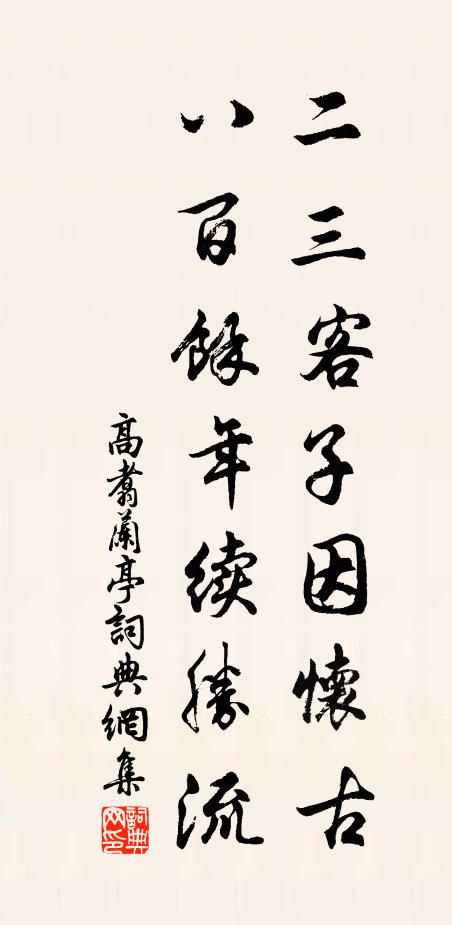 二三客子因懷古
八百餘年續勝流
高翥蘭亭詞典網集
詞典網印